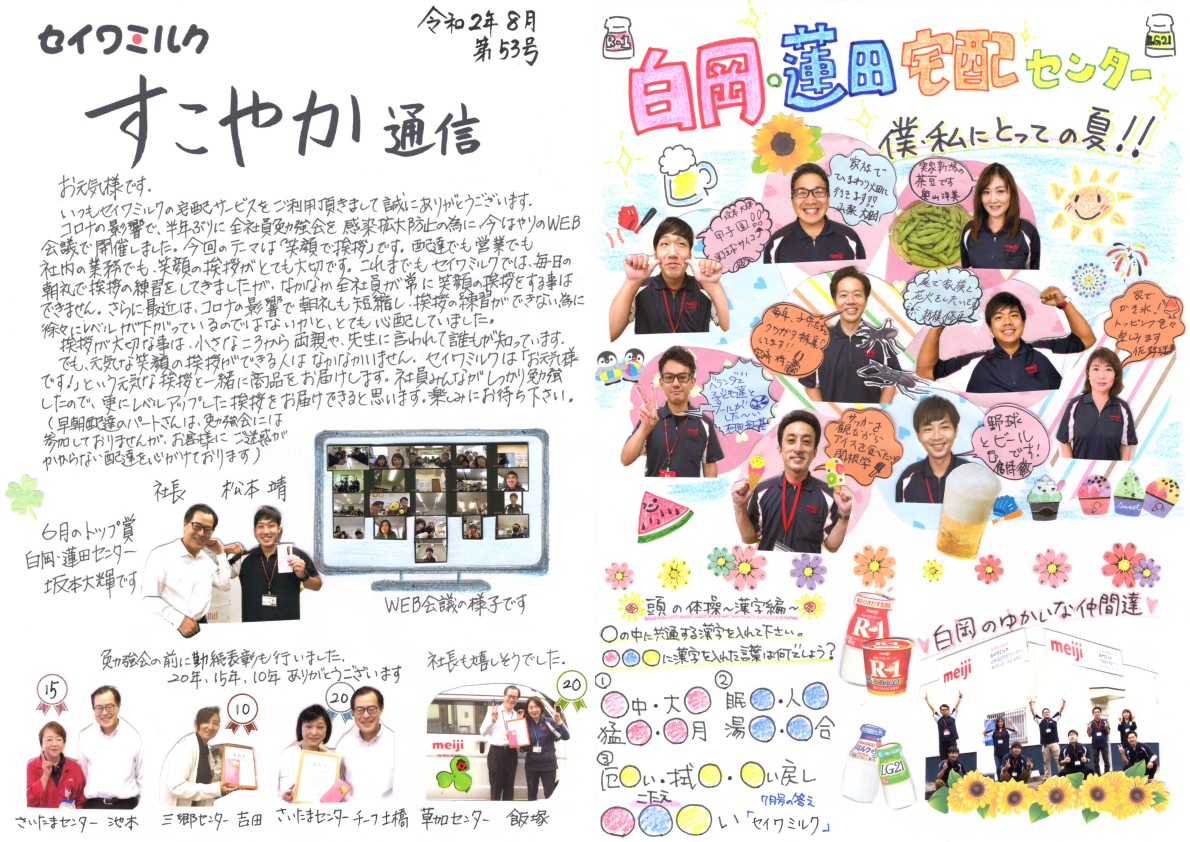 セイワミルク
令和2年8月
第53号
すこやか通信
お元気様です。
いつもセイワミルクの宅配サービスをご利用頂きまして誠にありがとうございます。
コロナの影響で、半年ぶりに全社員勉強会を感染拡大防止の為に、今はやりのWEB
会議で開催しました。今回のテーマは「笑顔で挨拶」です。配達でも営業でも
社内の業務でも、笑顔の挨拶がとても大切です。これまでもセイワミルクでは、毎日の
朝礼で挨拶の練習をしてきましたが、なかなか全社員が常に笑顔の挨拶をする事は
できません。さらに最近は、コロナの影響で朝礼も短縮し、挨拶の練習ができない為に
徐々にレベルが下がっているのではないかと、とても心配していました。
挨拶が大切な事は、小さなころから両親や、先生に言われて誰もが知っています。
でも、元気な笑顔の挨拶ができる人はなかなかいません。セイワミルクは「お元気様
です!」という元気な挨拶と一緒に商品をお届けします。社員みんながしっかり勉強
したので、更にレベルアップした挨拶をお届けできると思います。楽しみにお待ち下さい。
(早朝配達のパートさんは、勉強会には
参加しておりませんが、お客様にご迷惑が
かからない配達を心がけております)
社長 松本 靖
6月のトップ賞
白岡・蓮田センター
坂本大輝です
WEB会議の様子です
勉強会の前に勤続表彰も行いました。
20年、15年、10年 ありがとうございます
社長も嬉しそうでした。
15
10
20
20
meiji
さいたまセンター 池本
三郷センター 吉田
さいたまセンターチーフ土橋
草加センター 飯塚
R-1
LG21
白岡・蓮田宅配センター
僕・私にとっての夏!!
家族で
ひまわり畑に
行きます!!
実家新潟の
茶豆です
奥山洋美
甲子園!!
野球サイコー
毎年、子供たちと
クワガタ採集
してます!
庭で家族と
花火をしたいです
家で
かき氷!
トッピング色々
楽しみます
佐野
ベランダで
子ども達と
プールが
した〜い
サッカーを
観ながら
アイスを食べたい
関根学
野球
とビール
です!
sweet
頭の体操〜漢字編〜
○の中に共通する漢字を入れて下さい。
○○○に漢字を入れた言葉は何でしょう?
① ○中・大○
猛○・○月
② 眠○・人○
湯○・○合
③ 厄○い・拭○・○い戻し
こたえ
○○○い
7月号の答え
「セイワミルク」
meiji
R-1
meiji
R-1
LG21
白岡のゆかいな仲間達
meiji
meiji